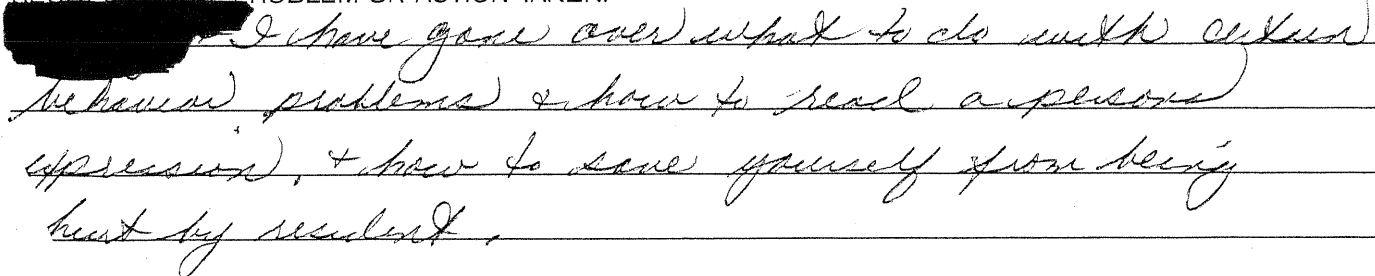 PROBLEM OR ACTION TAKEN:
I have gone over what to do with certain
behavior problems & how to read a persons
expression, & how to save yourself from being
hurt by resident.